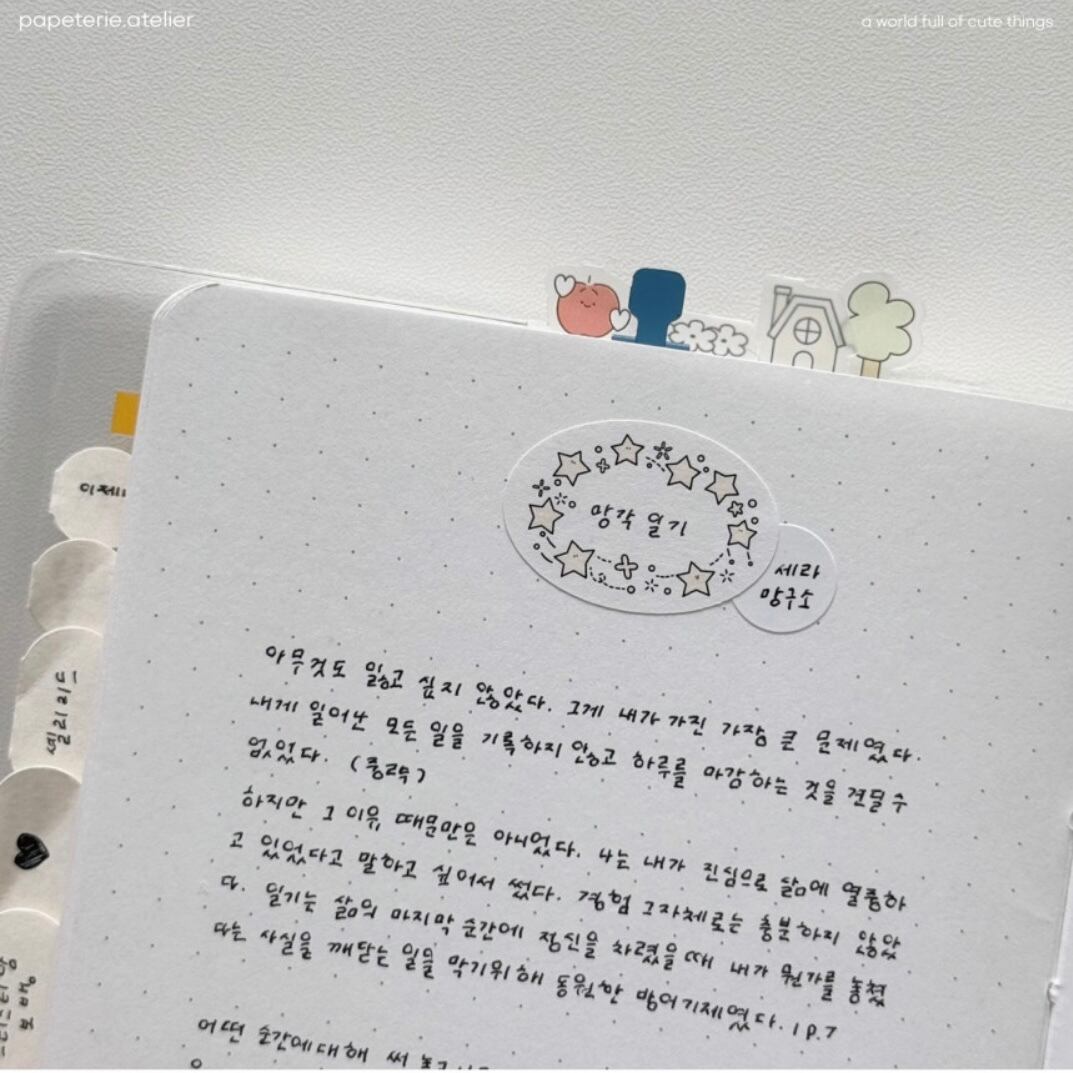 papeterie.atelier
a world full of cute things
망각 일기
세라
망구소
이제니
셀리리드
아무것도 잃고 싶지 않았다. 그게 내가 가진 가장 큰 문제였다.
내게 일어난 모든 일을 기록하지 않고 하루를 마감하는 것을 견딜 수
없었다. (중략)
하지만 그 이유 때문만은 아니었다. 나는 내가 진심으로 삶에 열중하
고 있었다고 말하고 싶어서 썼다. 경험 그자체로는 충분하지 않았
다. 일기는 삶의 마지막 순간에 정신을 차렸을 때 내가 뭔가를 놓쳤
다는 사실을 깨닫는 일을 막기위해 동원한 방어기제였다. | p.7
어떤 순간에대해 써